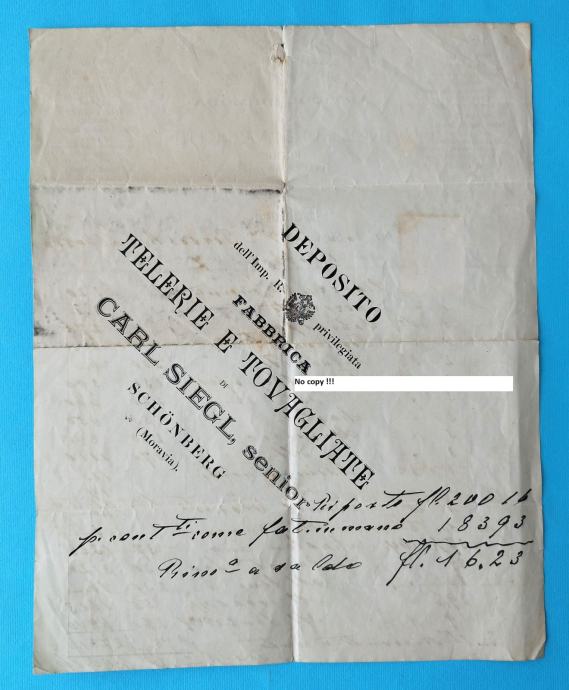 DEPOSITO
dell'Imp. R. privilegiata
FABBRICA
TELERIE E TOVAGLIATE
DI
CARL SIEGL, senior
SCHÖNBERG
(Moravia).
No copy !!!
Riporto fl. 200 16
come 183 93
a saldo fl. 16.23